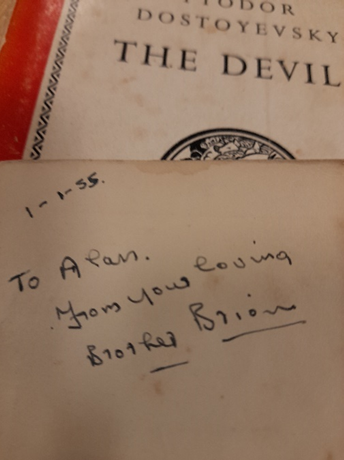 FYODOR
DOSTOYEVSKY
THE DEVIL
1-1-55.
To Alan.
From your loving
Brother Brian